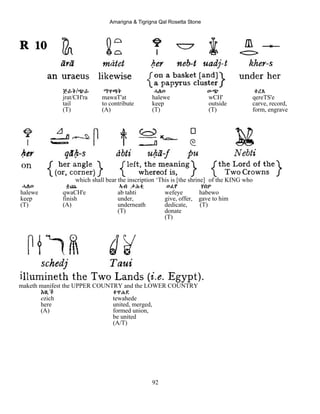 Amarigna & Tigrigna Qal Rosetta Stone
R 10
ārā mátet ḥer neb-t uadj-t kher-s
an uraeus likewise on a basket [and] a papyrus cluster under her
ጅራት/ጭራ ማዋጣት ሓለወ ውጭ ቀረጸ
jrat/CH'ra mawaT'at halewe wCH' qereTS'e
tail to contribute keep outside carve, record,
(T) (A) (T) (T) form, engrave
ḥer qāḥ-s ábti uḥā-f pu Nebti
on her angle (or, corner) left, the meaning whereof is, the Lord of the Two Crowns
which shall bear the inscription ‘This is [the shrine] of the KING who
ሓለወ ቋጨ ኣብ ታሕቲ ወፈየ ሃበዎ
halewe qwaCH'e ab tahti wefeye habewo
keep finish under, give, offer, gave to him
(T) (A) underneath dedicate, (T)
(T) donate
(T)
schedj Taui
illumineth the Two Lands (i.e. Egypt).
maketh manifest the UPPER COUNTRY and the LOWER COUNTRY
እዚች ተዋሐደ
ezich tewahede
here united, merged,
(A) formed union,
be united
(A/T)
92